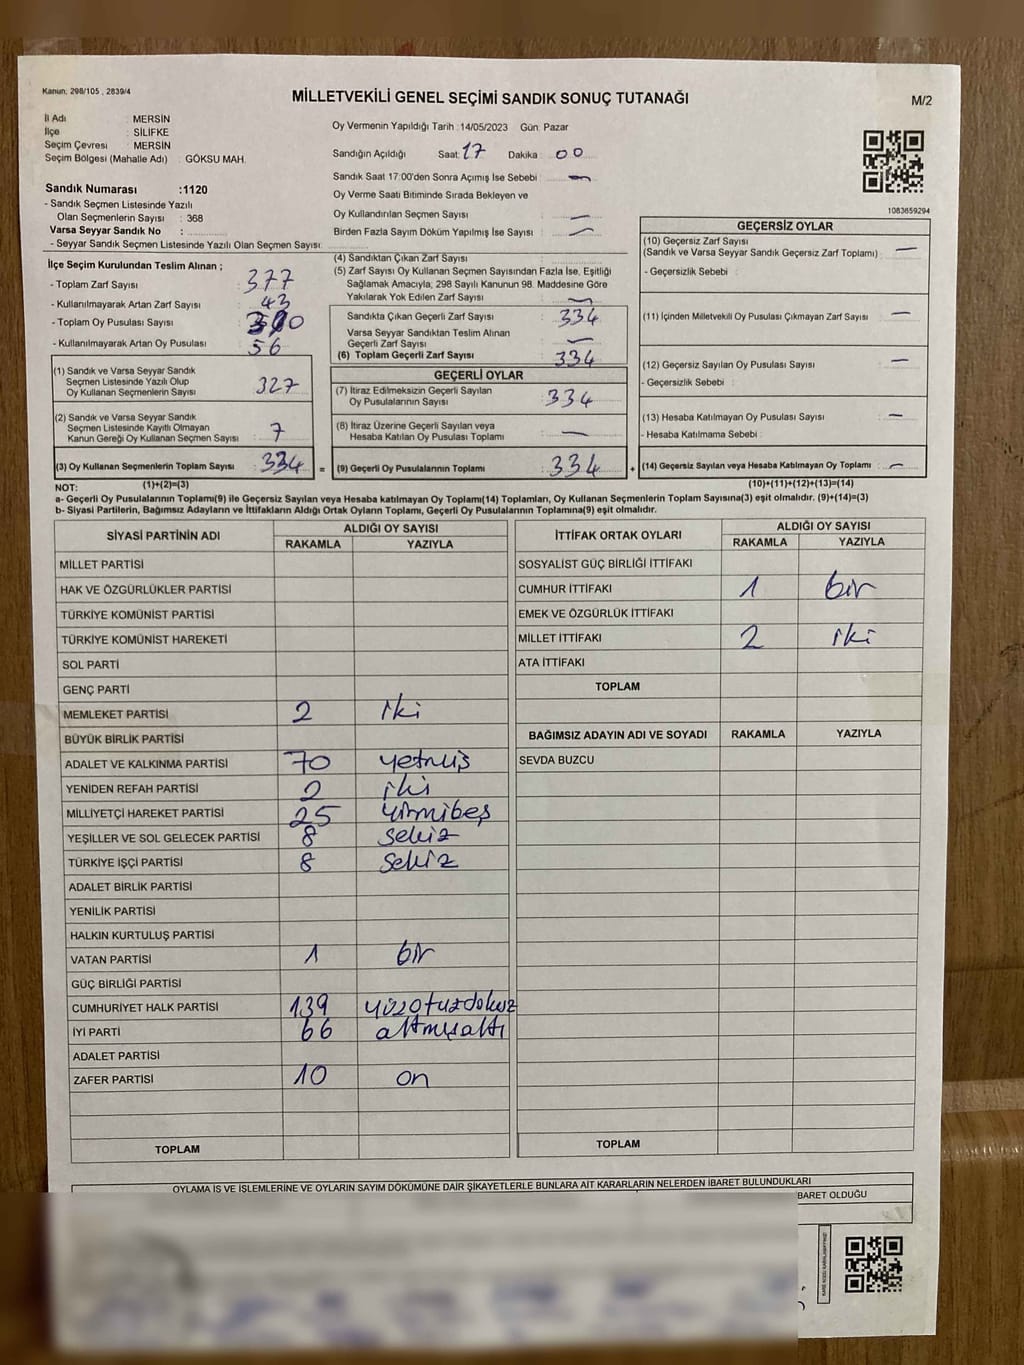 Kanun: 298/105 , 2839/4
MİLLETVEKİLİ GENEL SEÇİMİ SANDIK SONUÇ TUTANAĞI
M/2
İl Adı : MERSİN
İlçe : SİLİFKE
Seçim Çevresi : MERSİN
Seçim Bölgesi (Mahalle Adı) : GÖKSU MAH.
Sandık Numarası :1120
- Sandık Seçmen Listesinde Yazılı
Olan Seçmenlerin Sayısı : 368
Varsa Seyyar Sandık No :
- Seyyar Sandık Seçmen Listesinde Yazılı Olan Seçmen Sayısı:
Oy Vermenin Yapıldığı Tarih :14/05/2023 Gün: Pazar
Sandığın Açıldığı Saat: 17 Dakika : 00
Sandık Saat 17:00'den Sonra Açımış İse Sebebi : —
Oy Verme Saati Bitiminde Sırada Bekleyen ve
Oy Kullandırılan Seçmen Sayısı : —
Birden Fazla Sayım Döküm Yapılmış İse Sayısı : —
1083659294
İlçe Seçim Kurulundan Teslim Alınan ;
- Toplam Zarf Sayısı : 377
- Kullanılmayarak Artan Zarf Sayısı : 43
- Toplam Oy Pusulası Sayısı
- Kullanılmayarak Artan Oy Pusulası : 56
(1) Sandık ve Varsa Seyyar Sandık
Seçmen Listesinde Yazılı Olup
Oy Kullanan Seçmenlerin Sayısı : 327
(2) Sandık ve Varsa Seyyar Sandık
Seçmen Listesinde Kayıtlı Olmayan
Kanun Gereği Oy Kullanan Seçmen Sayısı : 7
(3) Oy Kullanan Seçmenlerin Toplam Sayısı : 334 =
(1)+(2)=(3)
(4) Sandıktan Çıkan Zarf Sayısı :
(5) Zarf Sayısı Oy Kullanan Seçmen Sayısından Fazla İse, Eşitliği
Sağlamak Amacıyla, 298 Sayılı Kanunun 98. Maddesine Göre
Yakılarak Yok Edilen Zarf Sayısı : —
Sandıkta Çıkan Geçerli Zarf Sayısı : 334
Varsa Seyyar Sandıktan Teslim Alınan
Geçerli Zarf Sayısı : —
(6) Toplam Geçerli Zarf Sayısı : 334
GEÇERLİ OYLAR
(7) İtiraz Edilmeksizin Geçerli Sayılan
Oy Pusulalarının Sayısı : 334
(8) İtiraz Üzerine Geçerli Sayılan veya
Hesaba Katılan Oy Pusulası Toplamı : —
(9) Geçerli Oy Pusulalarının Toplamı : 334 +
GEÇERSİZ OYLAR
(10) Geçersiz Zarf Sayısı
(Sandık ve Varsa Seyyar Sandık Geçersiz Zarf Toplamı) : —
- Geçersizlik Sebebi :
(11) İçinden Milletvekili Oy Pusulası Çıkmayan Zarf Sayısı : —
(12) Geçersiz Sayılan Oy Pusulası Sayısı : —
- Geçersizlik Sebebi :
(13) Hesaba Katılmayan Oy Pusulası Sayısı : —
- Hesaba Katılmama Sebebi :
(14) Geçersiz Sayılan veya Hesaba Katılmayan Oy Toplamı : —
(10)+(11)+(12)+(13)=(14)
NOT:
a- Geçerli Oy Pusulalarının Toplamı(9) ile Geçersiz Sayılan veya Hesaba katılmayan Oy Toplamı(14) Toplamları, Oy Kullanan Seçmenlerin Toplam Sayısına(3) eşit olmalıdır. (9)+(14)=(3)
b- Siyasi Partilerin, Bağımsız Adayların ve İttifakların Aldığı Oyların Toplamı, Geçerli Oy Pusulalarının Toplamına(9) eşit olmalıdır.
SİYASİ PARTİNİN ADI ALDIĞI OY SAYISI
RAKAMLA YAZIYLA
MİLLET PARTİSİ
HAK VE ÖZGÜRLÜKLER PARTİSİ
TÜRKİYE KOMÜNİST PARTİSİ
TÜRKİYE KOMÜNİST HAREKETİ
SOL PARTİ
GENÇ PARTİ
MEMLEKET PARTİSİ 2 iki
BÜYÜK BİRLİK PARTİSİ
ADALET VE KALKINMA PARTİSİ 70 yetmiş
YENİDEN REFAH PARTİSİ 2 iki
MİLLİYETÇİ HAREKET PARTİSİ 25 yirmibeş
YEŞİLLER VE SOL GELECEK PARTİSİ 8 sekiz
TÜRKİYE İŞÇİ PARTİSİ 8 sekiz
ADALET BİRLİK PARTİSİ
YENİLİK PARTİSİ
HALKIN KURTULUŞ PARTİSİ
VATAN PARTİSİ 1 bir
GÜÇ BİRLİĞİ PARTİSİ
CUMHURİYET HALK PARTİSİ 139 yüzotuzdokuz
İYİ PARTİ 66 altmışaltı
ADALET PARTİSİ
ZAFER PARTİSİ 10 on
TOPLAM
İTTİFAK ORTAK OYLARI ALDIĞI OY SAYISI
RAKAMLA YAZIYLA
SOSYALİST GÜÇ BİRLİĞİ İTTİFAKI
CUMHUR İTTİFAKI 1 bir
EMEK VE ÖZGÜRLÜK İTTİFAKI
MİLLET İTTİFAKI 2 iki
ATA İTTİFAKI
TOPLAM
BAĞIMSIZ ADAYIN ADI VE SOYADI RAKAMLA YAZIYLA
SEVDA BUZCU
TOPLAM
OYLAMA İŞ VE İŞLEMLERİNE VE OYLARIN SAYIM DÖKÜMÜNE DAİR ŞİKAYETLERLE BUNLARA AİT KARARLARIN NELERDEN İBARET BULUNDUKLARI
BARET OLDUĞU